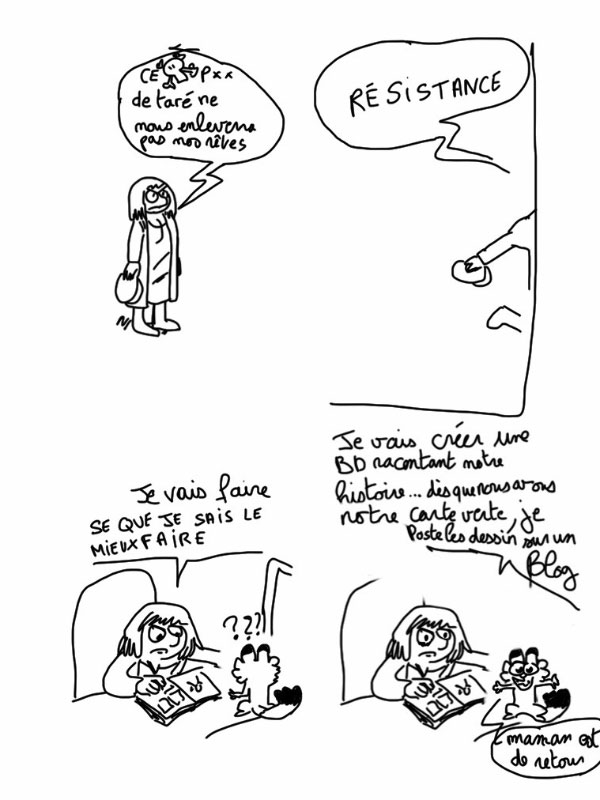 CE Pxx
de taré ne
nous enlevera
pas nos rêves
RÉSISTANCE
Je vais faire
SE QUE JE SAIS LE
MIEUX FAIRE
???
Je vais créer une
BD racontant notre
histoire... dès que nous avons
notre carte verte, je
Poste les dessin sur un
Blog
maman est
de retour